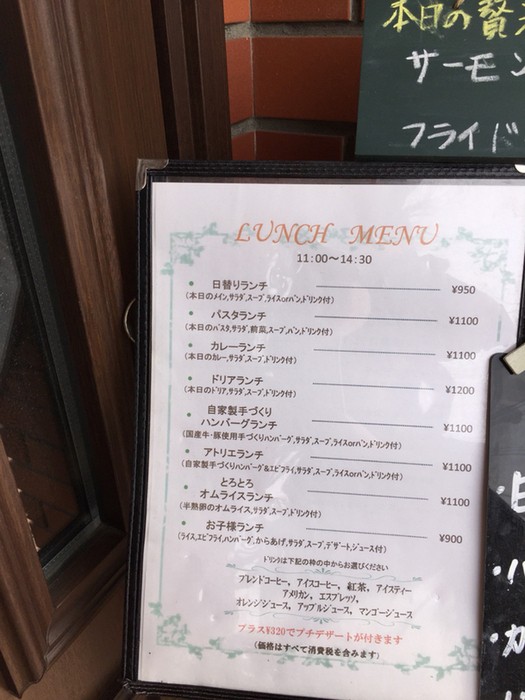 本日の贅
サーモン
フライド
LUNCH MENU
11:00～14:30
• 日替りランチ ¥950
(本日のメイン,サラダ,スープ,ライスorパン,ドリンク付)
• パスタランチ ¥1100
(本日のパスタ,サラダ,前菜,スープ,パン,ドリンク付)
• カレーランチ ¥1100
(本日のカレー,サラダ,スープ,ドリンク付)
• ドリアランチ ¥1200
(本日のドリア,サラダ,スープ,ドリンク付)
• 自家製手づくり
ハンバーグランチ ¥1100
(国産牛・豚使用手づくりハンバーグ,サラダ,スープ,ライスorパン,ドリンク付)
• アトリエランチ ¥1100
(自家製手づくりハンバーグ&エビフライ,サラダ,スープ,ライスorパン,ドリンク付)
• とろとろ
オムライスランチ ¥1100
(半熟卵のオムライス,サラダ,スープ,ドリンク付)
• お子様ランチ ¥900
(ライス,エビフライ,ハンバーグ,からあげ,サラダ,スープ,デザート,ジュース付)
ドリンクは下記の枠の中からお選びください
ブレンドコーヒー, アイスコーヒー, 紅茶, アイスティー
アメリカン, エスプレッソ,
オレンジジュース, アップルジュース, マンゴージュース
プラス¥320でプチデザートが付きます
(価格はすべて消費税を含みます)